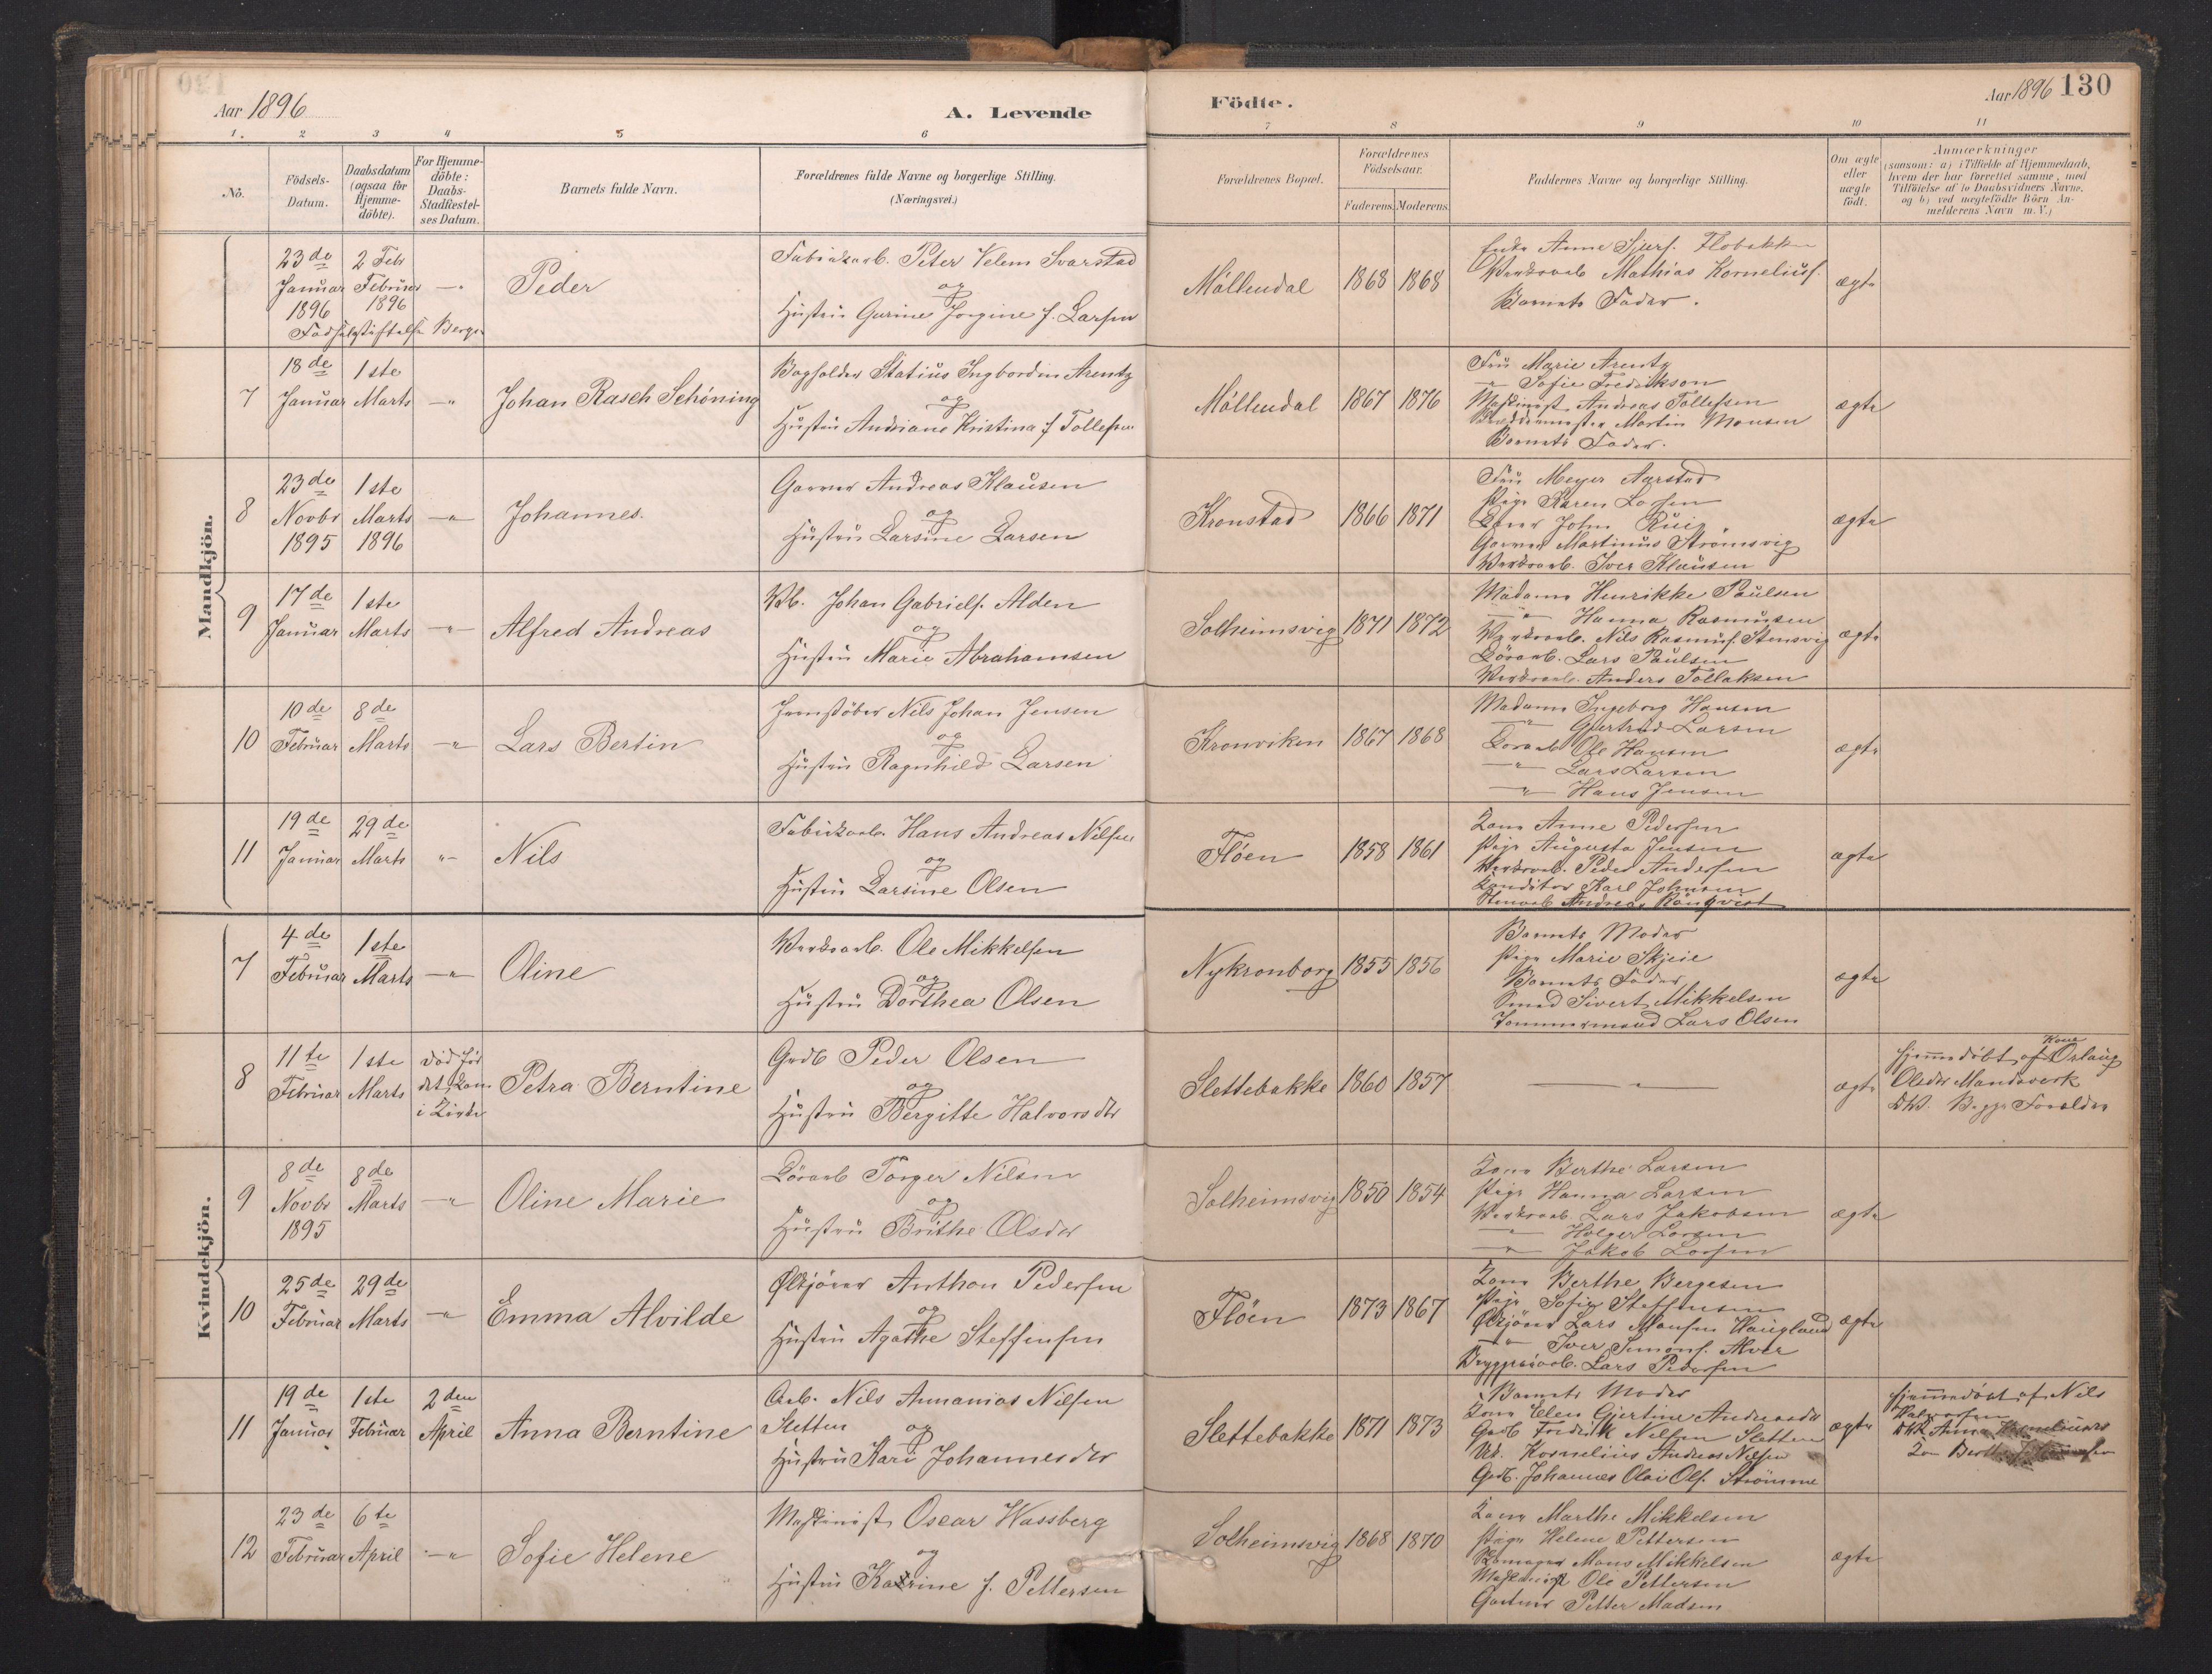 Aar 1896
A. Levende
Födte.
Aar 1896 130
1. 2 3 4 5 6 7 8 9 10 11
No.
Födsels-
Datum.
Daabsdatum
(ogsaa for
Hjemme-
döbte).
For Hjemme-
döbte:
Daabs-
Stadfæstel-
ses Datum.
Barnets fulde Navn.
Forældrenes fulde Navne og borgerlige Stilling.
(Næringsvei.)
Forældrenes Bopæl.
Forældrenes
Födselsaar.
Faderens. Moderens.
Faddernes Navne og borgerlige Stilling.
Om ægte
eller
uægte
födt.
Anmærkninger
(saasom: a) i Tilfælde af Hjemmedaab,
hvem der har forrettet samme, med
Tilföielse af to Daabsvidners Navne,
og b) ved uægtefödte Börn An-
melderens Navn m. V.)
Mandkjön.
23de
Januar
1896
2 Febr
Februar
1896
Födselsstiftelsen Bergen
Peder
Fabrikarb. Peter Velem Svarstad
og
Hustru Gurine Jorgine f. Larsen
Möllendal 1868 1868
Anne Sjurs. Flobakken
Værksarb Mathias Kornelius.
Barnets Fader.
ægte
7
18de
Januar
1ste
Marts
Johan Rasch Schöning
Bogholder Statius Ingbordin Arentz
og
Hustru Andriane Kristina f Tollefsen
Möllendal 1867 1876
Fru Marie Arentz
" Sofie Fredrikson
Maskinist Andreas Tollefsen
Martin Monsen
Barnets Fader.
ægte
8
23de
Novbr
1895
1ste
Marts
1896
Johannes.
Garver Andreas Klausen
og
Hustru Larsine Larsen
Kronstad 1866 1871
Fru Meyer Aarstad
Pige Karen Larsen
John
Garver Martinus Strömsvig
Værksarb. Iver Klausen
ægte
9
17de
Januar
1ste
Marts
Alfred Andreas
Vb. Johan Gabriels. Alden
og
Hustru Marie Abrahamsen
Solheimsvig 1871 1872
Madame Henrikke Paulsen
" Hanna Rasmusen
Værksarb. Nils Rasmus. Stensvig
Lars Paulsen
Værksarb. Anders Tollaksen
ægte
10
10de
Februar
8de
Marts
Lars Bertin
Jernstöber Nils Johan Jensen
og
Hustru Ragnhild Larsen
Kronviken 1867 1868
Madame Ingeborg Hansen
" Gjertrud Larsen
Ole Hansen
" Lars Larsen
" Hans Jensen
ægte
11
19de
Januar
29de
Marts
Nils
Fabrikarb. Hans Andreas Nilsen
og
Hustru Larsine Olsen
Flöen 1858 1861
Kone Anne Pedersen
Pige Augusta Jensen
Værksarb. Peder Andersen
Konditor Karl Johnsen
Andreas Rönqvist
ægte
Kvindekjön.
7
4de
Februar
1ste
Marts
Oline
Værksarb. Ole Mikkelsen
og
Hustru Dorthea Olsen
Nykronborg 1855 1856
Barnets Moder
Pige Marie Skjeie
Barnets Fader
Smed Sivert Mikkelsen
Tømmermand Lars Olsen
ægte
8
11te
Februar
1ste
Marts
död för
det kom
i Kirke
Petra Berntine
Grdb Peder Olsen
og
Hustru Bergitte Halvorsdtr
Slettebakke 1860 1857
ægte
Hjemmedöbt af Kone
Olsdtr Mandsverk
Begge Forældre
9
8de
Novbr
1895
8de
Marts
Oline Marie
Torger Nilsen
og
Hustru Brithe Olsdtr
Solheimsvig 1850 1854
Kone Berthe Larsen
Pige Hanna Larsen
Værksarb. Lars Jakobsen
" Holger Larsen
" Jakob Larsen
ægte
10
25de
Februar
29de
Marts
Emma Alvilde
Ölkjörer Anthon Pedersen
og
Hustru Agathe Steffensen
Flöen 1873 1867
Kone Berthe Bergesen
Pige Sofie Steffensen
Ölkjörer Lars Monsen Haugland
" Iver Simons. Alver
Bryggeriarb. Lars Pedersen
ægte
11
19de
Januar
1ste
Februar
2den
April
Anna Berntine
Arb. Nils Annanias Nilsen
Sletten og
Hustru Kari Johannesdtr
Slettebakke 1871 1873
Barnets Moder
Kone Elen Gjertine Andreasdtr
Grdb Fredrik Nilsen Sletten
Uk. Kornelius Andreas Nilsen
Grdb. Johannes Olai Ols. Strömme
ægte
Hjemmedöbt af Nils
Halvorsen
Anna
12
23de
Februar
6te
April
Sofie Helene
Maskinist Oscar Hassberg
og
Hustru Katrine f. Pettersen
Solheimsvig 1868 1870
Kone Marthe Mikkelsen
Pige Helene Pettersen
Mons Mikkelsen
Maskinist Ole Pettersen
Gartner Petter Madsen
ægte